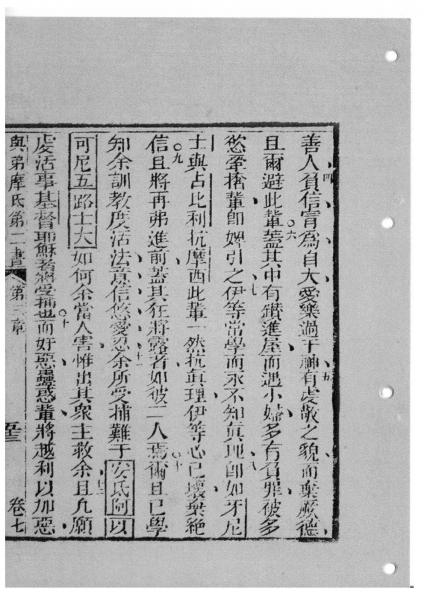 善人負信冐為自大愛樂過于神有虔敬之貌而棄厥德
且爾避此輩蓋其中有鑽進屋而遇小婦多有負罪被多
慾牽捨輩即婢引之伊等當學而永不知真理即如牙尼
士與占比利抗摩西此輩一然抗真理伊等心已壞棄絕
信且將再弗進前蓋其狂將露者如彼二人焉爾且已學
知余訓教度活法意信悠愛忍余所受捕難于安氐阿以
可尼五路士大如何余當人害惟出其衆主救余且凡願
虔活事基督耶穌者總受捕也而奸惡蠱惑輩將越利以加惡
與弟摩氐第二書 第三章 卷七